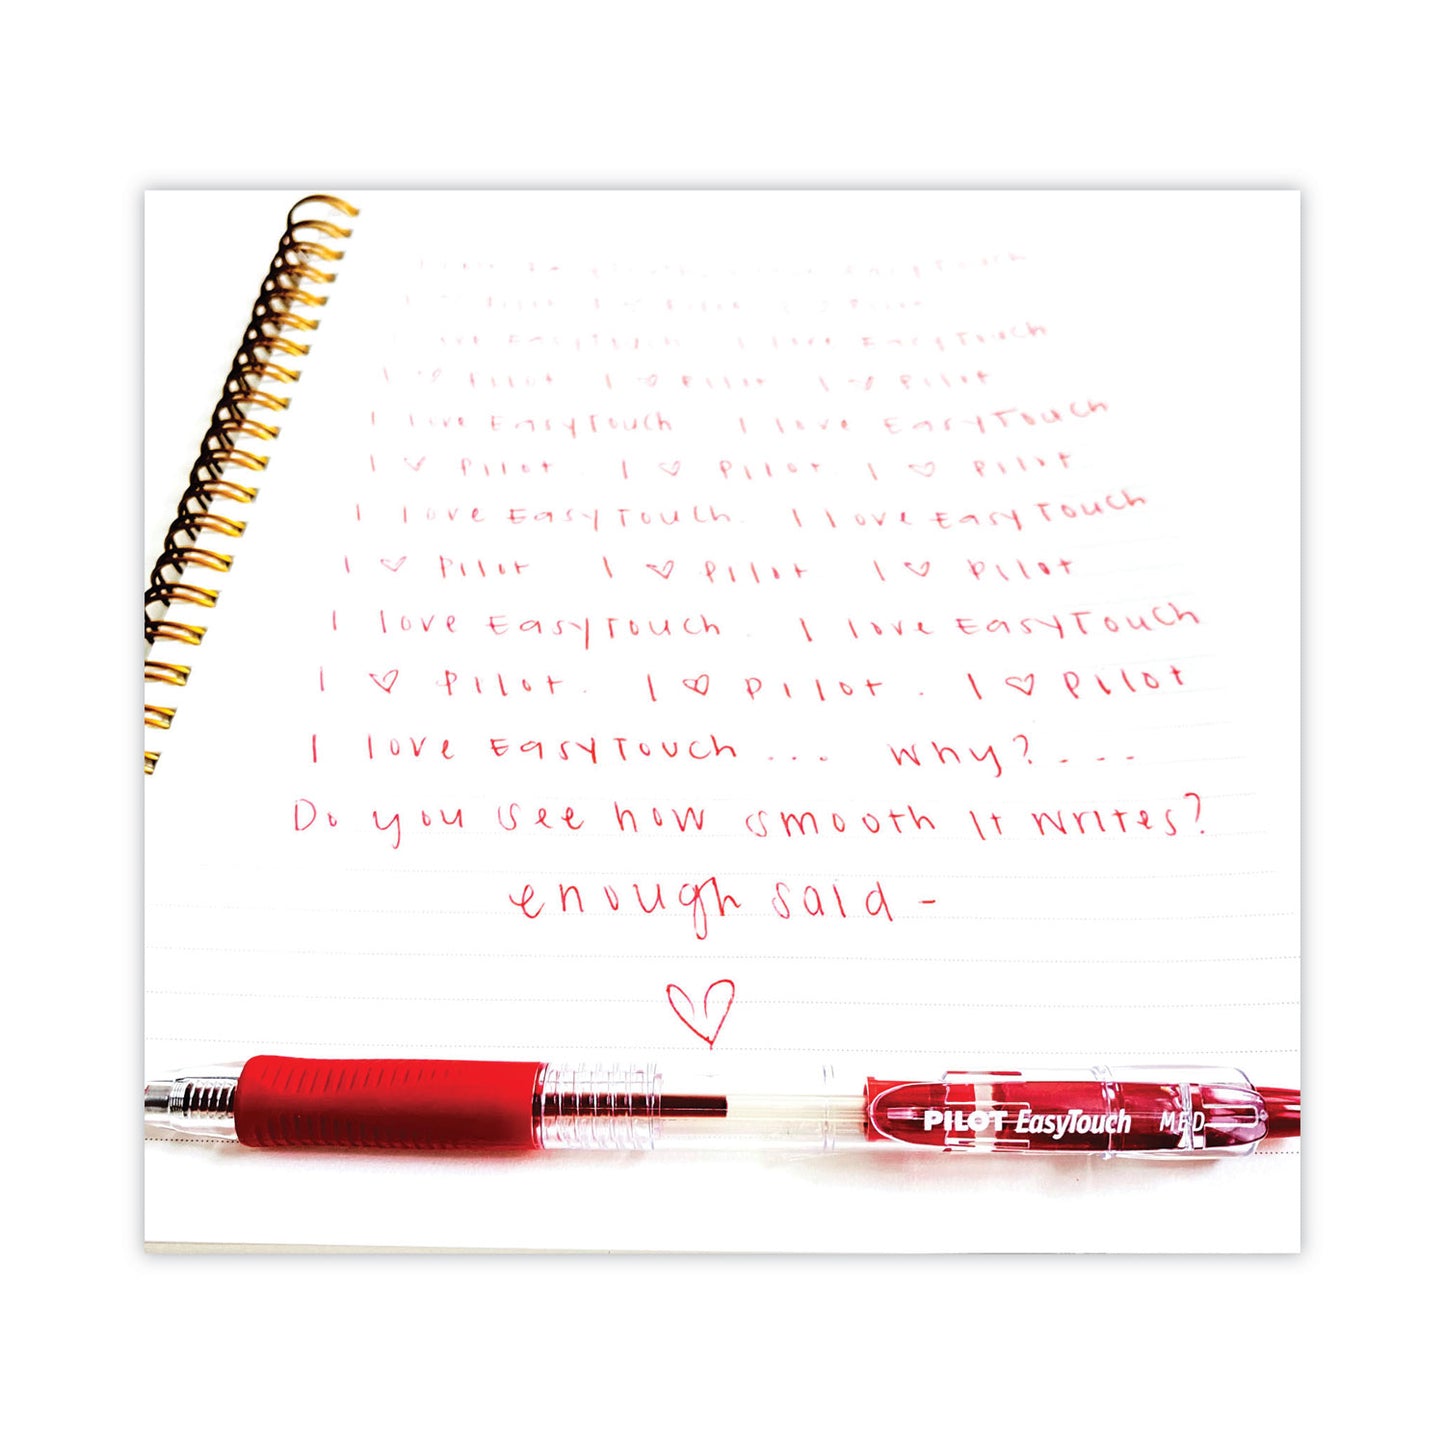 I love EasyTouch
I ♡ Pilot I ♡ Pilot I ♡ Pilot
I love EasyTouch I love EasyTouch
I ♡ Pilot I ♡ Pilot I ♡ Pilot
I love EasyTouch I love EasyTouch
I ♡ Pilot. I ♡ Pilot. I ♡ Pilot
I love EasyTouch. I love EasyTouch
I ♡ Pilot I ♡ Pilot I ♡ Pilot
I love EasyTouch. I love EasyTouch
I ♡ Pilot. I ♡ Pilot. I ♡ Pilot
I love EasyTouch... Why?....
Do you see how smooth it writes?
enough said -
♡
PILOT EasyTouch MED